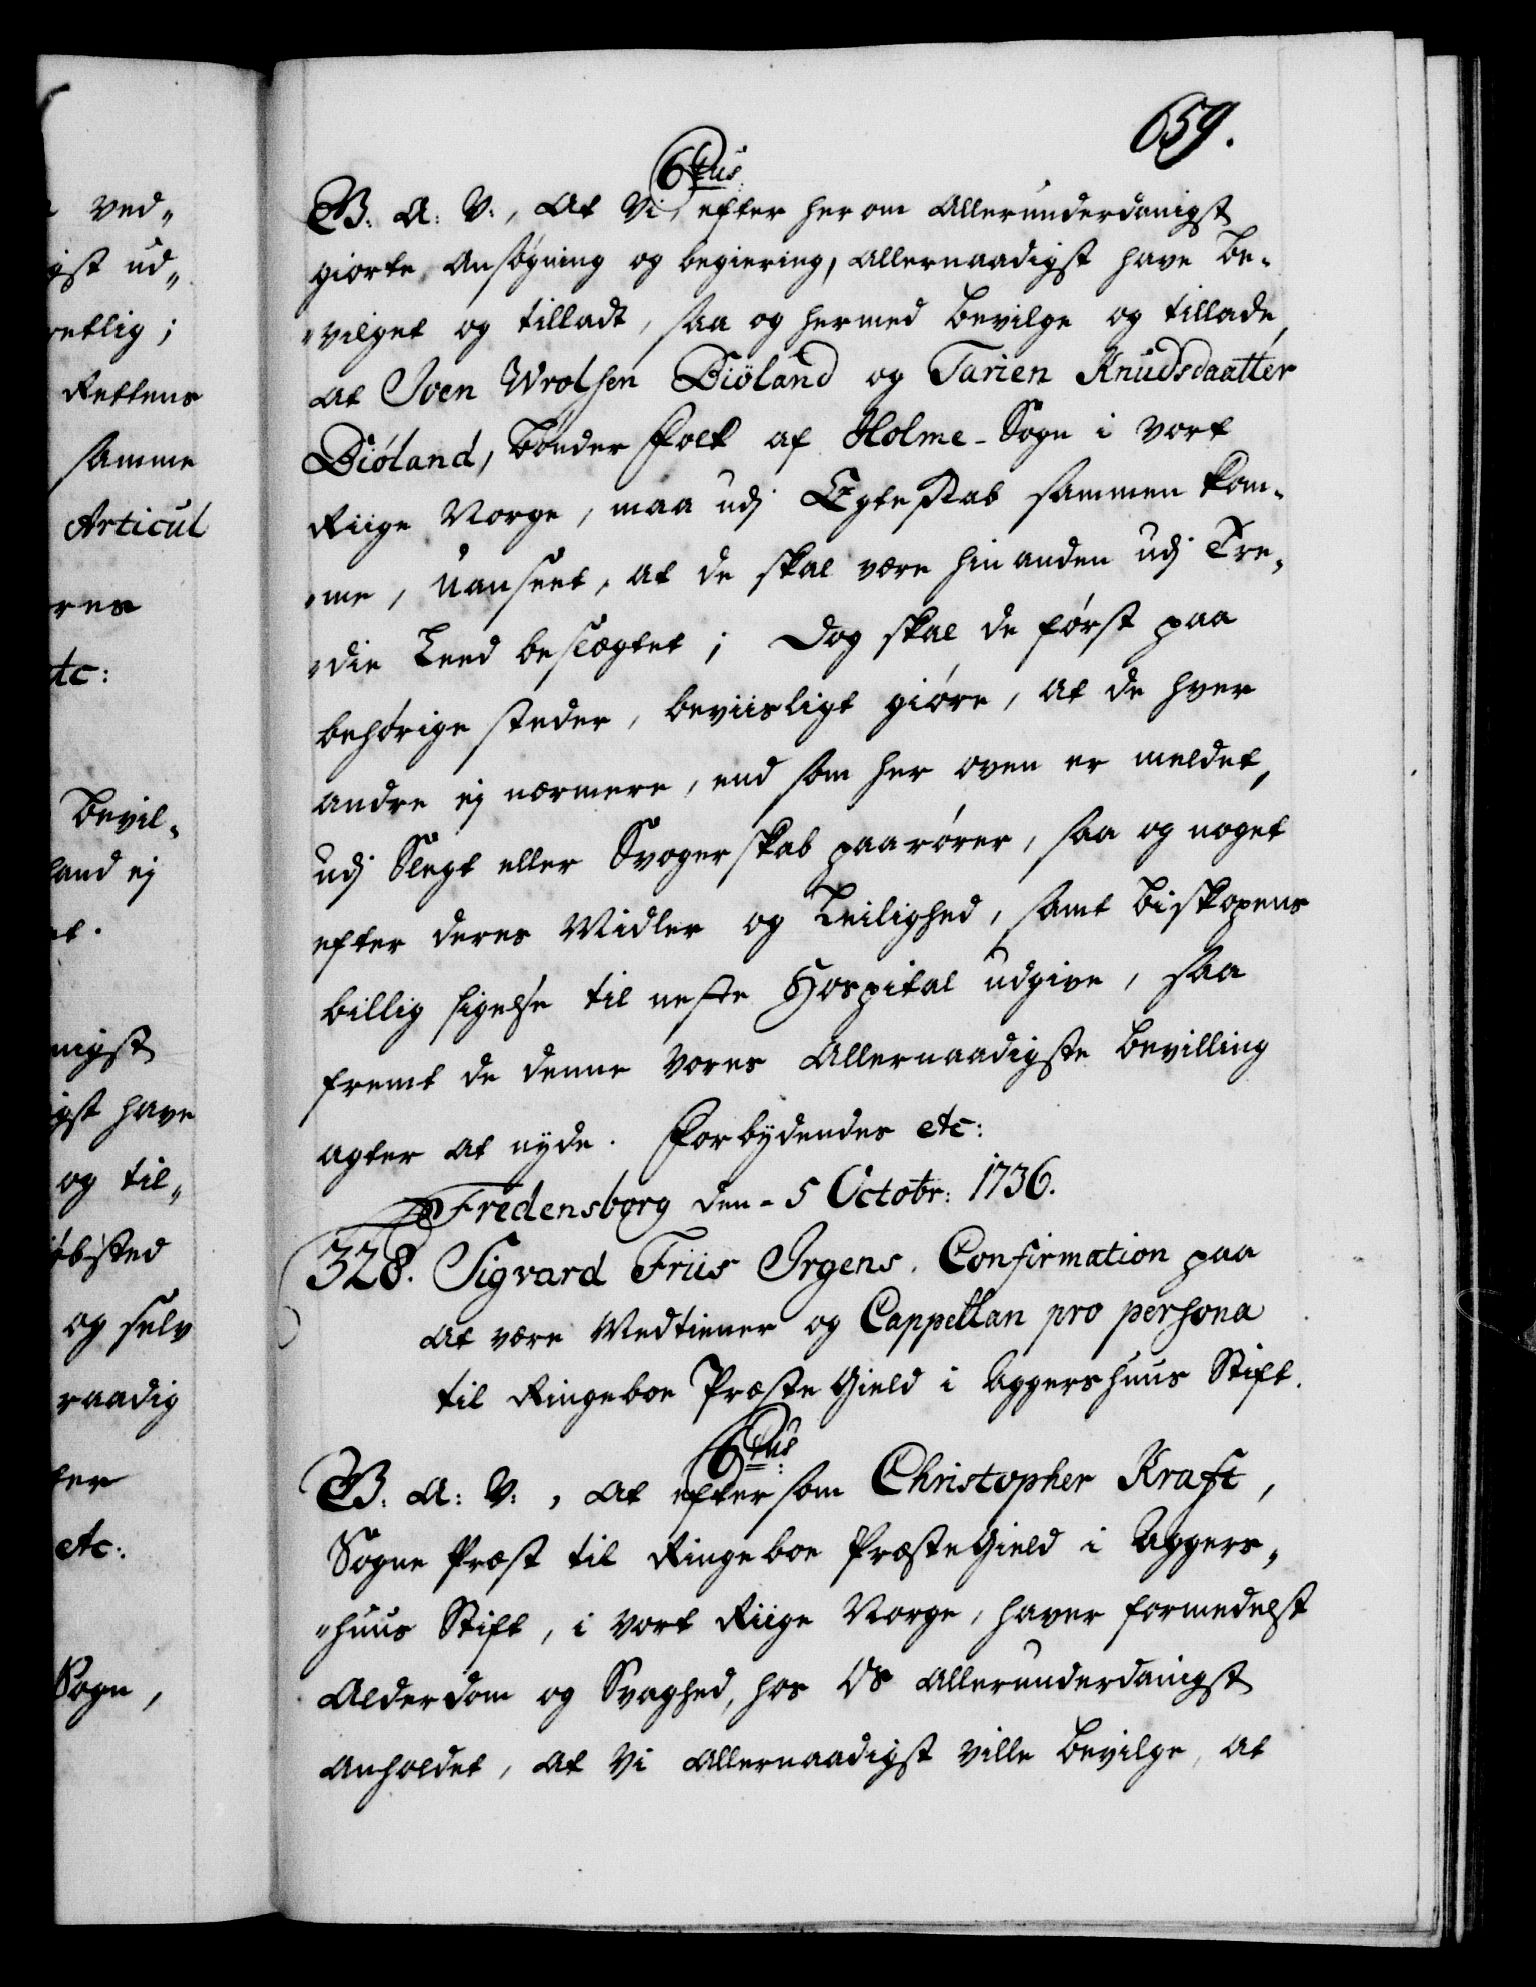 659.
6tus
G: A: V:, at Vi, efter her om allerunderdanigst
giorte Ansøgning og begiering, allernaadigst have be-
"vilget og tilladt, saa og hermed bevilge og tillade,
at Iven Wrolsen Diöland og Tarien Knudsdaatter
Diöland, bønder folk af Holme-Sogn i vort
Riige Norge, maa udj Egteskab sammen kom-
"me, uanseet, at de skal være hin anden udj Tre-
"die Leed beslægtet; dog skal de først paa
behørige steder, beviisligt giøre, at de hver
andre ej nærmere, end som her oven er meldet,
udj Slegt eller Svogerskab paarører, saa og noget
efter deres Midler og Leilighed, samt biskopens
billig sigelse til neste Hospital udgive, saa
fremt de denne vores allernaadigste bevilling
agter at nyde. Forbydendes etc:
Fredensborg den 5 Octobr: 1736.
328. Sigvard Friis Irgens, Confirmation paa
at være Medtiener og Cappellan pro persona
til Ringeboe Præste Gield i Aggershuus Stift.
6tus
G: A: V:, at eftersom Christopher Kraft,
Sogne Præst til Ringeboe Præste Gield i Aggers-
"huus Stift, i vort Riige Norge, haver formedelst
Alderdom og Svaghed, hos Os allerunderdanigst
anholdet, at Vi allernaadigst ville bevilge, at
ved"
ud"
Rettens
samme
Articul
etc:
bevil-
have
og til"
og selv
etc:
Sogn,